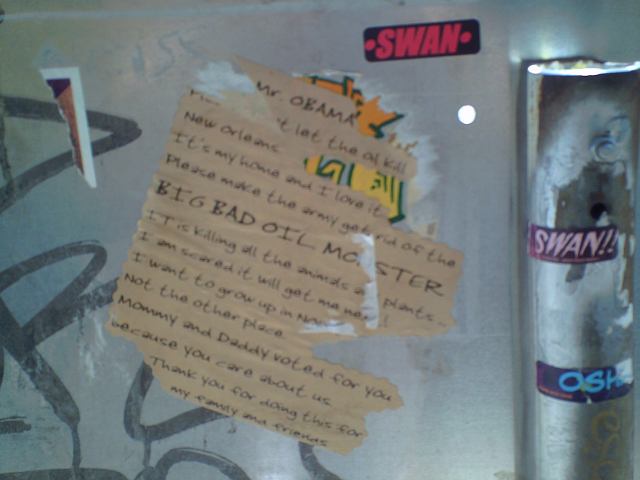 •SWAN•
Mr. OBAMA
't let the oil kill
New Orleans
It's my home and I love it
Please make the army get rid of the
BIG BAD OIL MO STER
IT is killing all the animals a plants...
I am scared it will get me ne !
I want to grow up in N
Not the other place.
Mommy and Daddy voted for you
because you care about us
Thank you for doing this for
my family and friends
SWAN!!
OSH